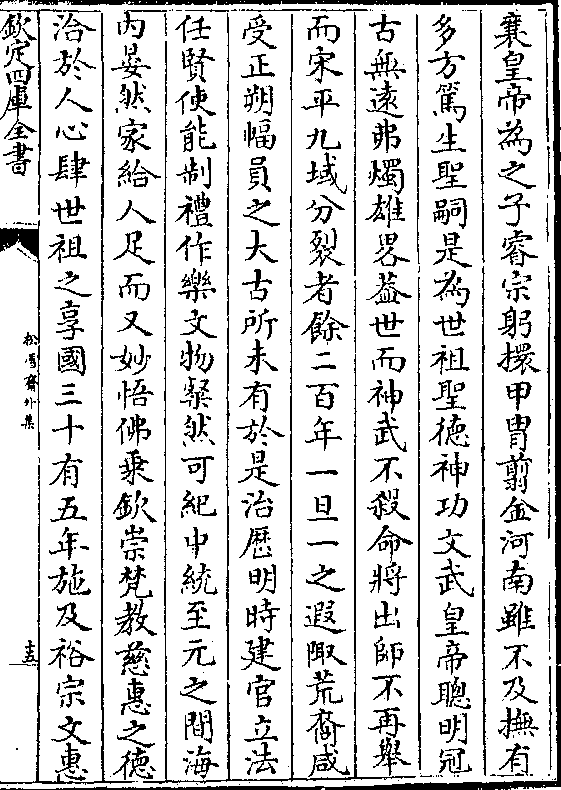 襄皇帝為之子睿宗躬擐甲胄翦金河南雖不及撫有
多方篤生聖嗣是為世祖聖德神功文武皇帝聰明冠
古無遠弗燭雄畧葢世而神武不殺命將出師不再舉
而宋平九域分裂者餘二百年一旦一之遐陬荒裔咸
受正朔幅員之大古所未有於是治歴明時建官立法
任賢使能制禮作樂文物粲然可紀中統至元之間海
内晏然家給人足而又妙悟佛乗欽崇梵教慈惠之德
洽於人心肆世祖之享國三十有五年施及裕宗文惠
欽定四庫全書
松雪齋外集
十五